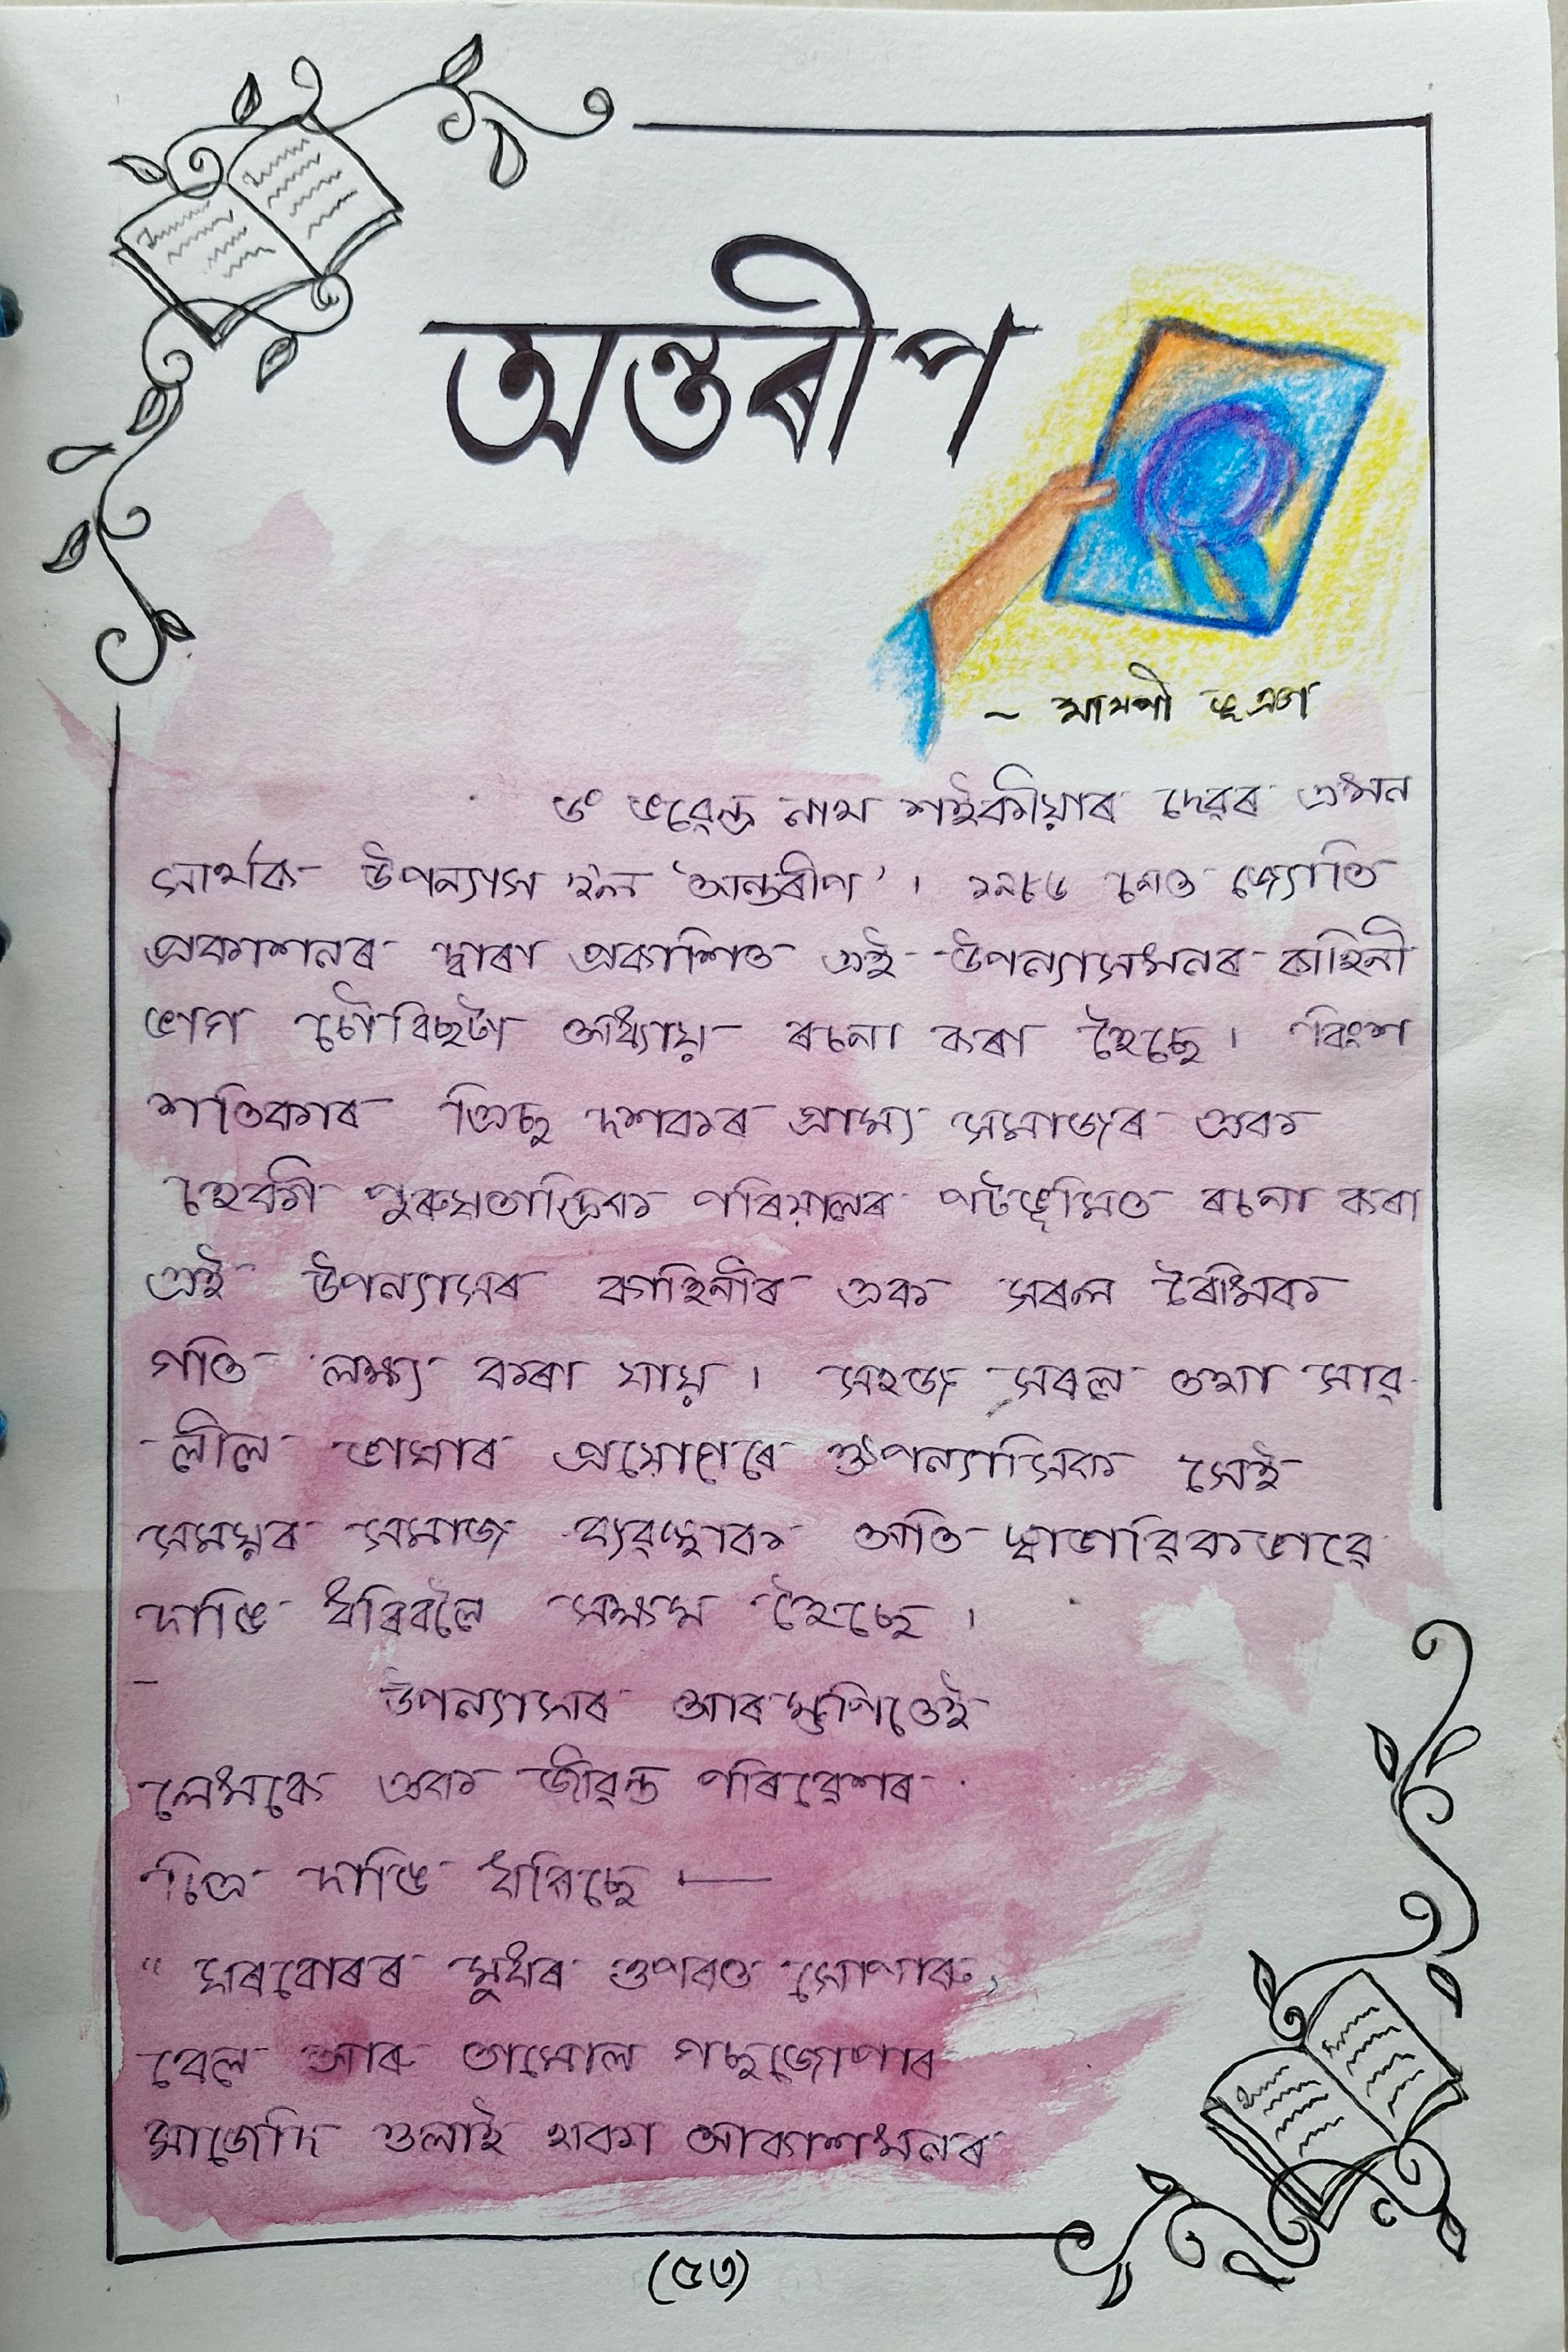 অন্তৰীপ
~ মামপী ভূঞা
ড° ভৱেন্দ্ৰ নাথ শইকীয়াৰ দেৱৰ এখন
সাৰ্থক উপন্যাস হ'ল 'অন্তৰীপ' । ১৯৮৬ চনত জ্যোতি
প্ৰকাশনৰ দ্বাৰা প্ৰকাশিত এই উপন্যাসখনৰ কাহিনী
ভাগ চৌবিছটা অধ্যায়ত ৰচনা কৰা হৈছে । বিংশ
শতিকাৰ ত্ৰিছ দশকৰ গ্ৰাম্য সমাজৰ এক
পুৰুষতান্ত্ৰিক পৰিয়ালৰ পটভূমিত ৰচনা কৰা
এই উপন্যাসৰ কাহিনীৰ এক সৰল ৰৈখিক
গতি লক্ষ্য কৰা যায় । সহজ সৰল তথা সাৱ-
-লীল ভাষাৰ প্ৰয়োগেৰে ঔপন্যাসিক সেই
সময়ৰ সমাজ ব্যৱস্থাক অতি স্বাভাৱিকভাৱে
দাঙি ধৰিবলৈ সক্ষম হৈছে ।
উপন্যাসৰ আৰম্ভণিতেই
লেখকে এক জীৱন্ত পৰিৱেশৰ
চিত্ৰ দাঙি ধৰিছে ।—
" ঘৰবোৰৰ মুধৰ ওপৰত সোণাৰু,
বেল আৰু তামোল গছজোপাৰ
মাজেদি ওলাই থকা আকাশখনৰ
(৫৩)